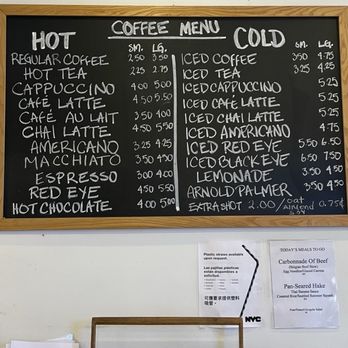 COFFEE MENU
HOT SM. LG.
REGULAR COFFEE 2.50 3.50
HOT TEA 2.25 2.75
CAPPUCCINO 4.00 5.00
CAFÉ LATTE 4.50 5.50
CAFÉ AU LAIT 3.50 4.00
CHAI LATTE 4.50 5.50
AMERICANO 3.25 4.25
MACCHIATO 3.50 4.50
ESPRESSO 3.00 4.00
RED EYE 4.50 5.50
HOT CHOCOLATE 4.00 5.00
COLD SM. LG.
ICED COFFEE 3.50 4.75
ICED TEA 3.25 4.25
ICED CAPPUCCINO 5.25
ICED CAFÉ LATTE 5.25
ICED CHAI LATTE 5.25
ICED AMERICANO 4.75
ICED RED EYE 5.50 6.50
ICED BLACK EYE 6.50 7.50
LEMONADE 3.50 4.50
ARNOLD PALMER 3.50 4.50
EXTRA SHOT 2.00 / oat
almond 0.75¢
soy
Plastic straws available
upon request.
Las pajitas plásticas
están disponibles a
solicitud.
可應要求提供塑料
吸管。
NYC
TODAY'S MEALS TO GO
Carbonnade Of Beef
(Belgian Beef Stew)
Pan-Seared Hake